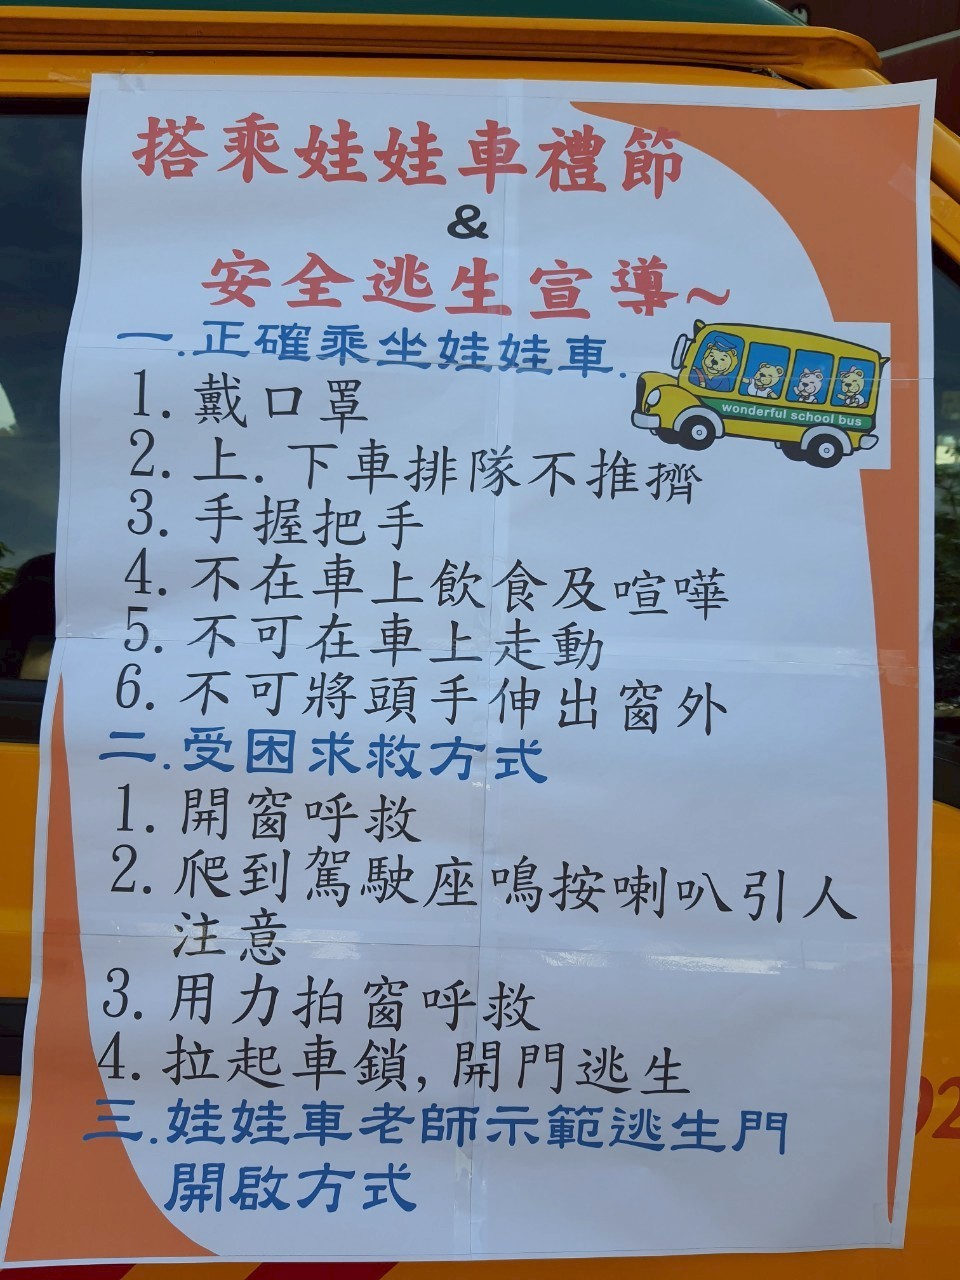 搭乘娃娃車禮節
&
安全逃生宣導~
一.正確乘坐娃娃車.
wonderful school bus
1.戴口罩
2.上.下車排隊不推擠
3.手握把手
4.不在車上飲食及喧嘩
5.不可在車上走動
6.不可將頭手伸出窗外
二.受困求救方式
1.開窗呼救
2.爬到駕駛座鳴按喇叭引人
注意
3.用力拍窗呼救
4.拉起車鎖,開門逃生
三.娃娃車老師示範逃生門
開啟方式